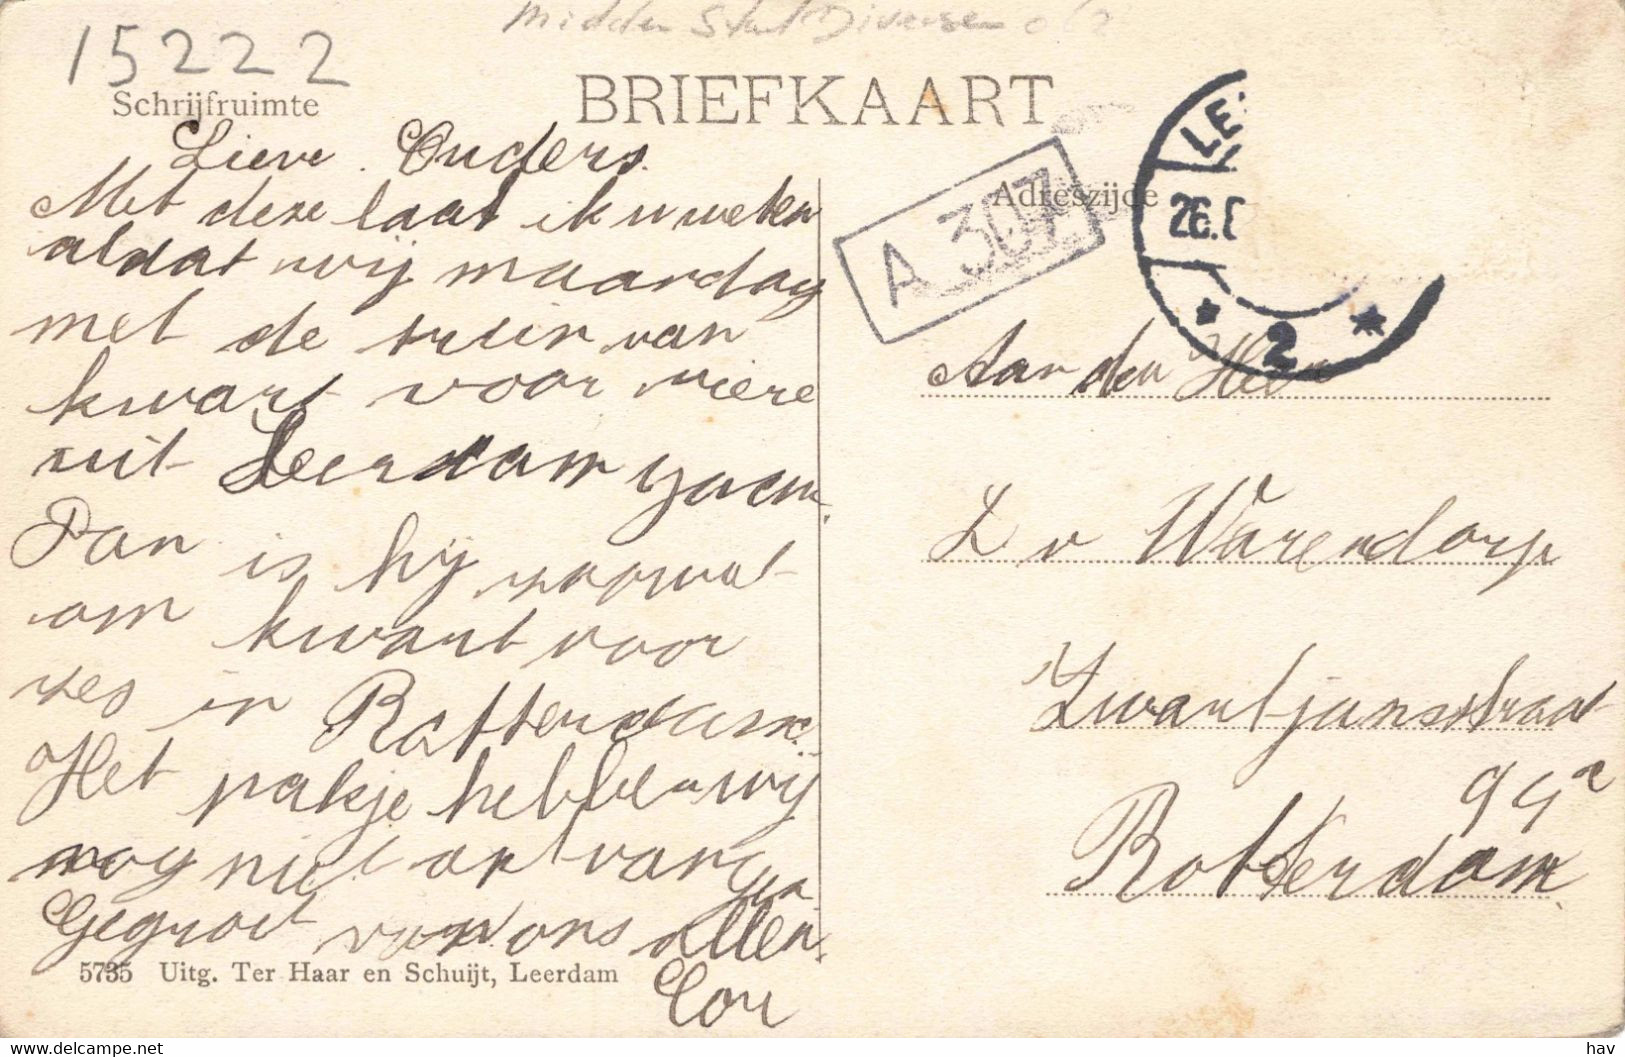 Midden Stad Diversen
15222
Schrijfruimte
BRIEFKAART
Lieve Ouders
Met deze laat ik u weten
al dat wij maandag
met de trein van
kwart voor viere
uit Leerdam gaan.
Dan is hij
om kwart voor
zes in Rotterdam.
Het pakje hebben wij
nog niet ontvangen
Gegroet van ons allen.
Cor
5735 Uitg. Ter Haar en Schuijt, Leerdam
A 307
Adreszijde
LE
26.
2
Aan den Heer
L v Warendorp
Zwaantjansstraat
99a
Rotterdam
hav